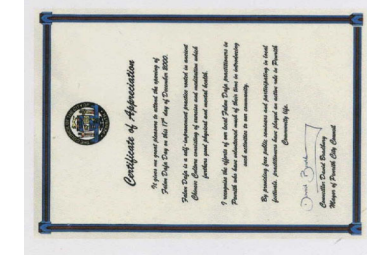 Certificate of Appreciation
It gives me great pleasure to attend the opening of
Falun Dafa Day on this 17th day of December 2000.
Falun Dafa is a self-improvement practice rooted in ancient
Chinese Culture consisting of exercise and meditation which
furthers good physical and mental health.
I recognise the efforts of our local Falun Dafa practitioners in
Penrith who have volunteered much of their time in introducing
such activities to our community.
By providing free public seminars and participating in local
festivals, practitioners have played an active role in Penrith
Community life.
Councillor David Bradbury
Mayor of Penrith City Council